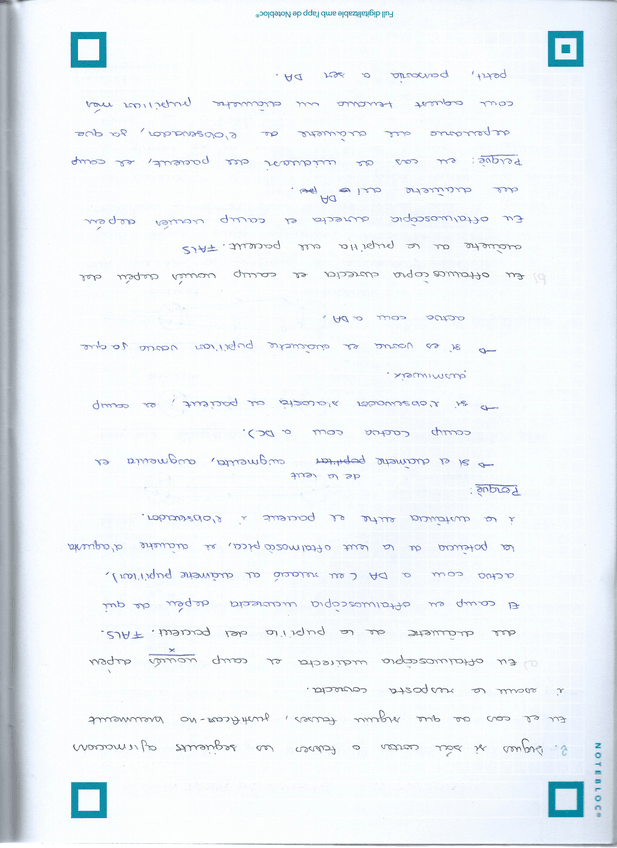 NOTEBLOC®
2. Digues si són certes o falses les següents afirmacions
En el cas de que siguin falses, justificar-ho breument
i escriu la resposta correcta.
a) En oftalmoscòpia indirecta el camp només depèn
del diàmetre de la pupil·la del pacient. FALS.
El camp en oftalmoscòpia indirecta depèn de qui
actua com a DA (en relació al diàmetre pupil·lar),
la potència de la lent oftalmoscòpica, el diàmetre d'aquesta
i la distància entre el pacient i l'observador.
Perquè:
→ si el diàmetre pupil·lar de la lent augmenta, augmenta el
camp (actua com a DC).
→ si l'observador s'acosta al pacient, el camp
disminueix.
→ si es varia el diàmetre pupil·lar varia ja que
actua com a DA.
b) En oftalmoscòpia directa el camp només depèn del
diàmetre de la pupil·la del pacient. FALS
En oftalmoscòpia directa el camp només depèn
del diàmetre del DA.
Perquè: en cas de midriasi del pacient, el camp
dependria del diàmetre de l'observador, ja que
com aquest tendria un diàmetre pupil·lar més
petit, passaria a ser DA.
Full digitalitzable amb l'app de Notebloc®